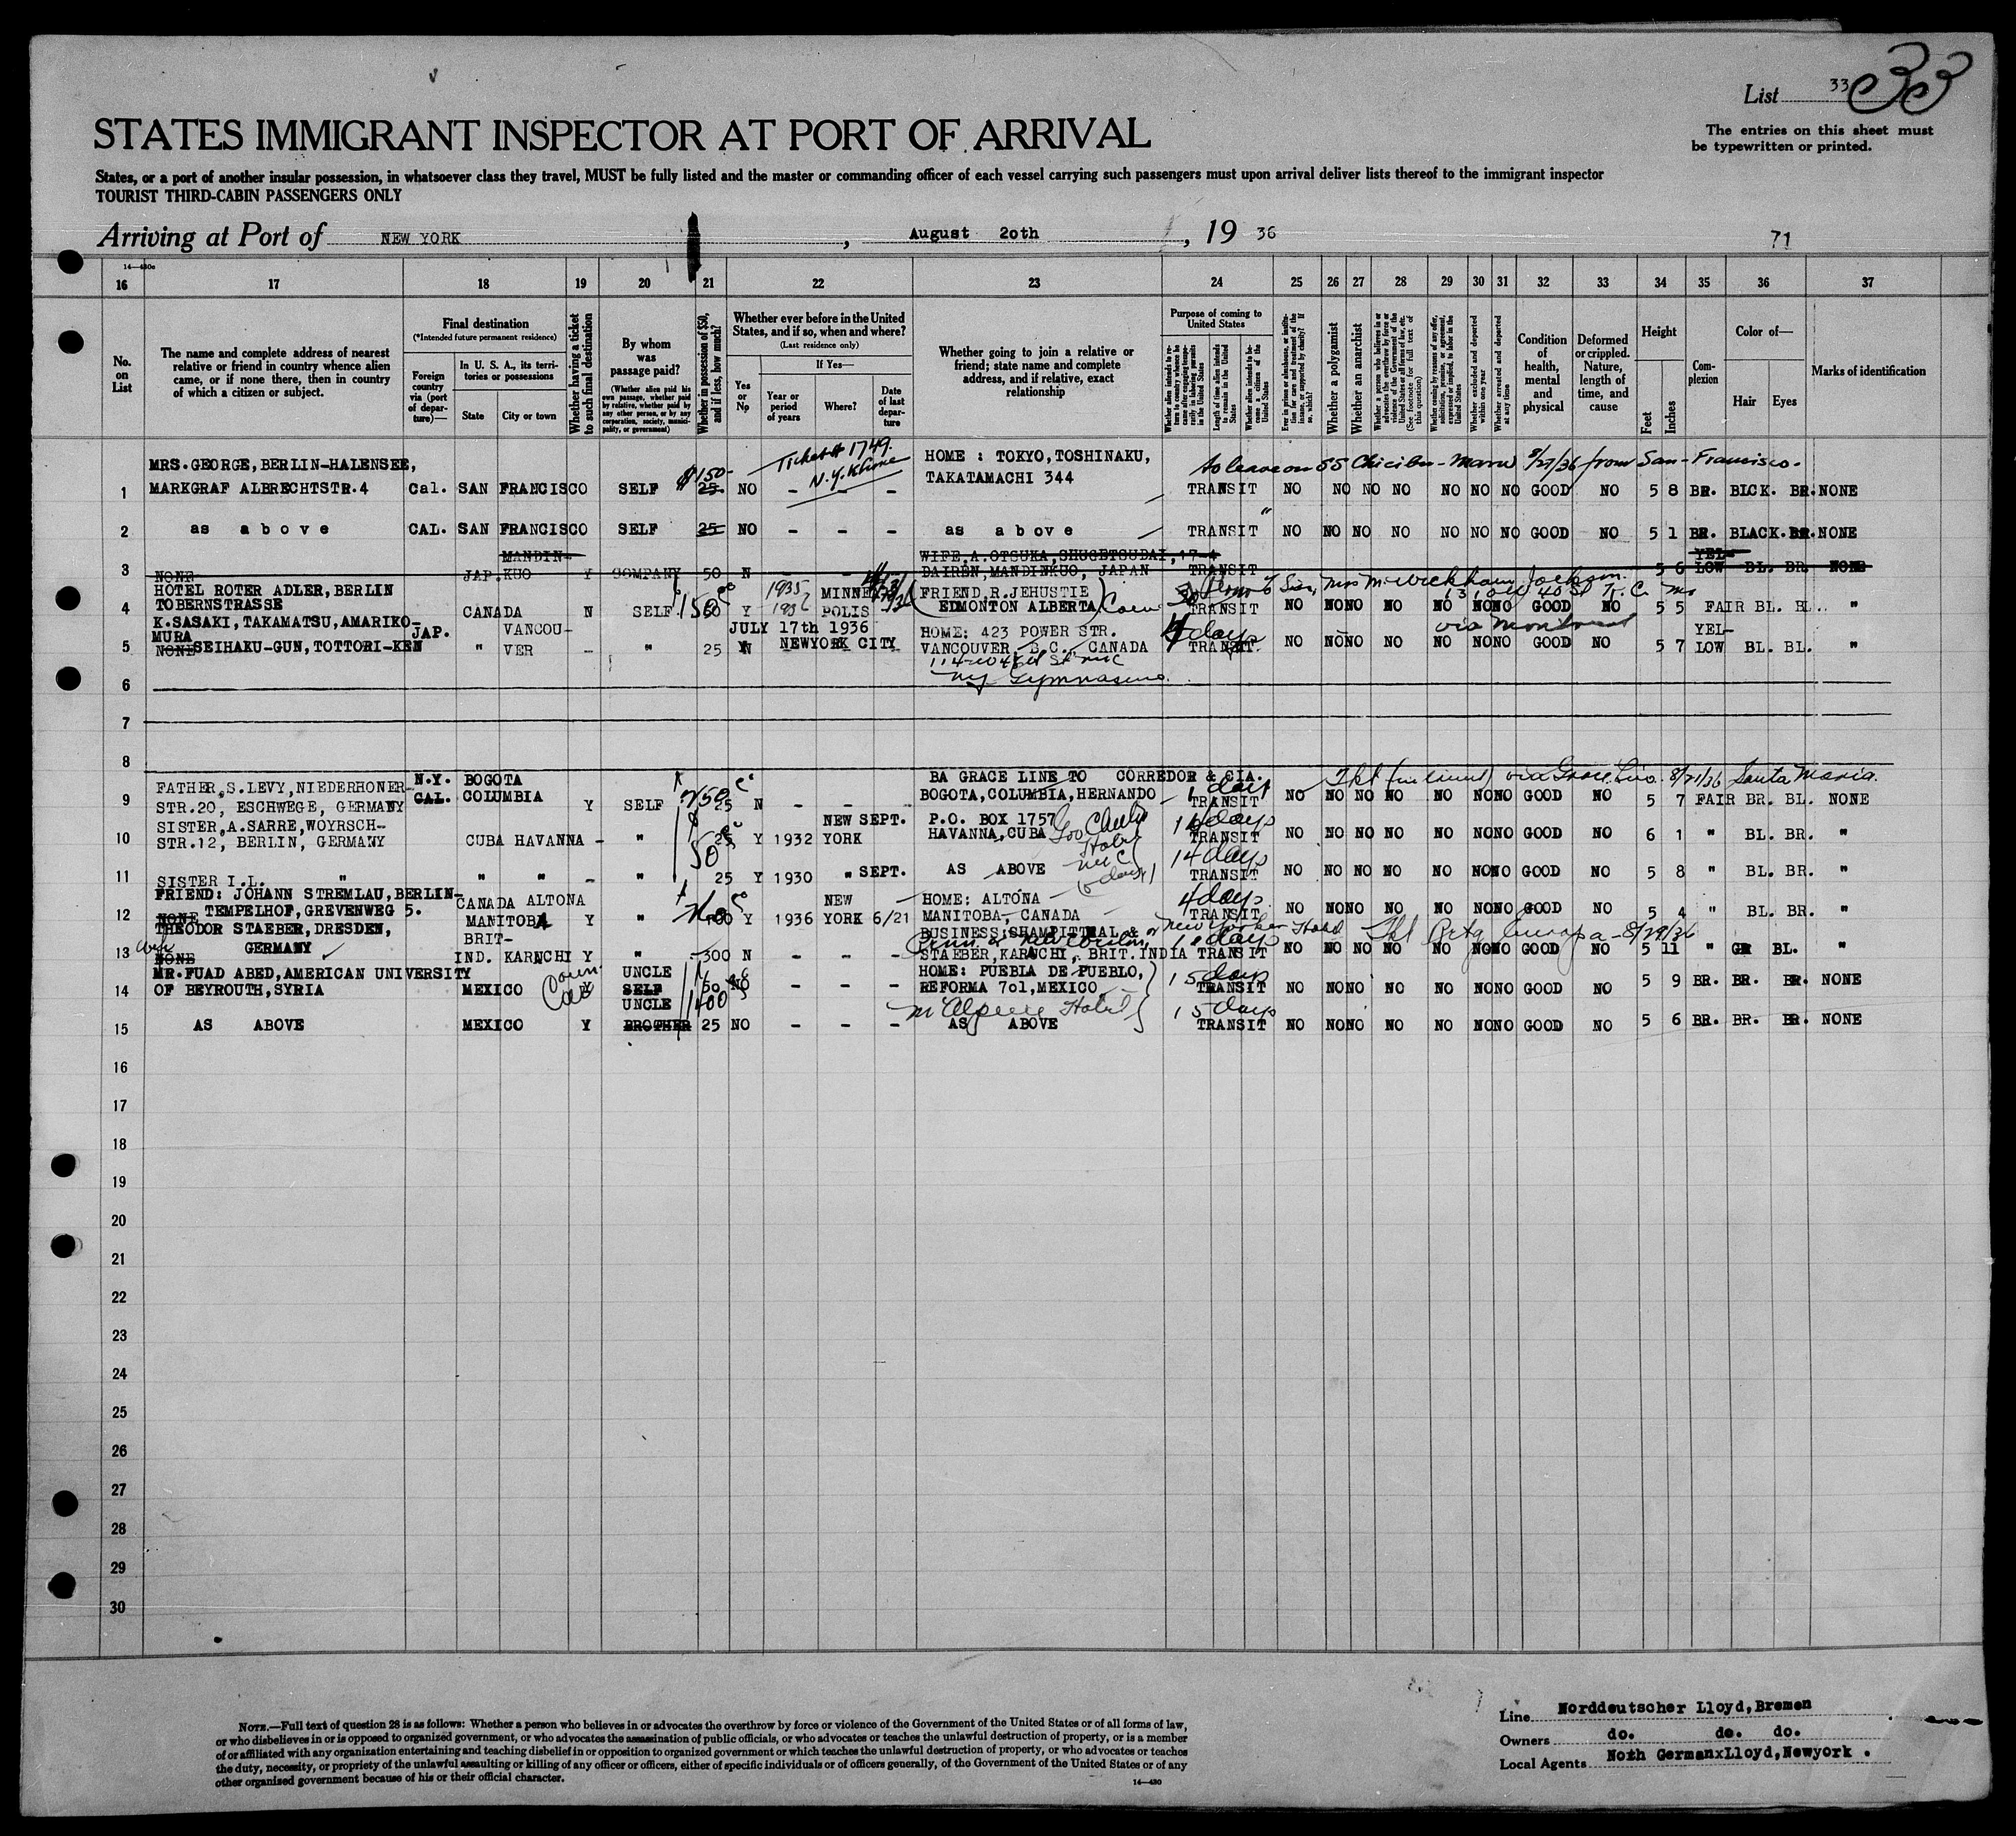 List 33 33
The entries on this sheet must
be typewritten or printed.
STATES IMMIGRANT INSPECTOR AT PORT OF ARRIVAL
States, or a port of another insular possession, in whatsoever class they travel, MUST be fully listed and the master or commanding officer of each vessel carrying such passengers must upon arrival deliver lists thereof to the immigrant inspector
TOURIST THIRD-CABIN PASSENGERS ONLY
Arriving at Port of NEW YORK, August 20th, 19 36
71
14—430c
16 17 18 19 20 21 22 23 24 25 26 27 28 29 30 31 32 33 34 35 36 37
No. on List
The name and complete address of nearest relative or friend in country whence alien came, or if none there, then in country of which a citizen or subject.
Final destination
(*Intended future permanent residence)
Foreign country via (port of departure)—
In U. S. A., its territories or possessions
State
City or town
Whether having a ticket to such final destination
By whom was passage paid?
(Whether alien paid his own passage, whether paid by relative, whether paid by any other person, or by any corporation, society, municipality, or government)
Whether in possession of $50, and if less, how much?
Whether ever before in the United States, and if so, when and where?
(Last residence only)
Yes or No
If Yes—
Year or period of years
Where?
Date of last departure
Whether going to join a relative or friend; state name and complete address, and if relative, exact relationship
Purpose of coming to United States
Length of time alien intends to remain in the United States
Whether alien intends to become a citizen of the United States
Whether a polygamist
Whether an anarchist
Whether excluded and deported within one year
Whether arrested and deported at any time
Condition of health, mental and physical
Deformed or crippled. Nature, length of time, and cause
Height
Feet
Inches
Complexion
Color of—
Hair
Eyes
Marks of identification
Ticket # 1749.
N.Y. Khime
to leave on SS Chicibu-Maru 8/27/36 from San-Francisco.
MRS.GEORGE,BERLIN-HALENSEE, $150- HOME : TOKYO,TOSHINAKU,
TAKATAMACHI 344
1 MARKGRAF ALBRECHTSTR.4 Cal. SAN FRANCISCO SELF 25- NO - - - TRANSIT NO NO NO NO NO NO NO GOOD NO 5 8 BR. BLCK. BR. NONE
2 as above CAL. SAN FRANCISCO SELF 25 NO - - - as above TRANSIT " NO NO NO NO NO NO NO GOOD NO 5 1 BR. BLACK. BR. NONE
MANDIN- WIFE,A.OTSUKA,SHUGETSUDAI,17-4 YEL-
3 NONE JAP. KUO Y COMPANY 50 N - - - DAIREN,MANDINKUO, JAPAN TRANSIT 5 6 LOW BL. BR. NONE
HOTEL ROTER ADLER,BERLIN 1935 MINNEA FRIEND,R.JEHUSTIE
4 TOBERNSTRASSE CANADA N SELF 150 Y 1936 POLIS EDMONTON ALBERTA TRANSIT NO NO NO NO NO NO NO GOOD NO 5 5 FAIR BL. BL. "
K.SASAKI,TAKAMATSU,AMARIKO- JULY 17th 1936 via Montreal
MURA JAP. VANCOU- HOME: 423 POWER STR. 4 days YEL-
5 NONE SEIHAKU-GUN,TOTTORI-KEN " VER - " 25 N NEWYORK CITY VANCOUVER B.C. CANADA TRANSIT. NO NO NO NO NO NO NO GOOD NO 5 7 LOW BL. BL. "
N.Y. Gymnasium.
6
7
8
N.Y. BOGOTA BA GRACE LINE TO CORREDOR & CIA.
via Grace Line 8/21/36 Santa Maria.
FATHER,S.LEVY,NIEDERHONER- CAL. COLUMBIA BOGOTA,COLUMBIA,HERNANDO 1 day
9 STR.20, ESCHWEGE, GERMANY Y SELF 25 N - - - TRANSIT NO NO NO NO NO NO NO GOOD NO 5 7 FAIR BR. BL. NONE
SISTER,A.SARRE,WOYRSCH- NEW SEPT. P.O. BOX 1757 14 days
10 STR.12, BERLIN, GERMANY CUBA HAVANNA - " 25 Y 1932 YORK HAVANNA,CUBA TRANSIT NO NO NO NO NO NO NO GOOD NO 6 1 " BL. BR. "
Hotel
14 days
11 SISTER I.L. " " " - " 25 Y 1930 " SEPT. AS ABOVE TRANSIT NO NO NO NO NO NO NO GOOD NO 5 8 " BL. BR. "
FRIEND: JOHANN STREMLAU,BERLIN- CANADA ALTONA NEW HOME: ALTONA 4 days
12 NONE TEMPELHOF,GREVENWEG 5. MANITOBA Y " Y 1936 YORK 6/21 MANITOBA, CANADA TRANSIT NO NO NO NO NO NO NO GOOD NO 5 4 " BL. BR. "
THEODOR STAEBER,DRESDEN, BRIT- BUSINESS:SHAMPITTMAL & New Yorker Hotel Europa - 8/29/36
13 NONE GERMANY IND. KARACHI Y " 300 N - - - STAEBER,KARACHI, BRIT.INDIA TRANSIT NO NO NO NO NO NO NO GOOD NO 5 11 " GR BL. "
MR.FUAD ABED,AMERICAN UNIVERSITY UNCLE HOME: PUEBLA DE PUEBLO, 15 days
14 OF BEYROUTH,SYRIA MEXICO SELF 50 NO - - - REFORMA 701,MEXICO TRANSIT NO NO NO NO NO NO NO GOOD NO 5 9 BR. BR. BR. NONE
UNCLE McAlpine Hotel 15 days
15 AS ABOVE MEXICO Y BROTHER 25 NO - - - AS ABOVE TRANSIT NO NO NO NO NO NO NO GOOD NO 5 6 BR. BR. BR. NONE
16
17
18
19
20
21
22
23
24
25
26
27
28
29
30
NOTE.—Full text of question 28 is as follows: Whether a person who believes in or advocates the overthrow by force or violence of the Government of the United States or of all forms of law,
or who disbelieves in or is opposed to organized government, or who advocates the assassination of public officials, or who advocates or teaches the unlawful destruction of property, or is a member
of or affiliated with any organization entertaining and teaching disbelief in or opposition to organized government or which teaches the unlawful destruction of property, or who advocates or teaches
the duty, necessity, or propriety of the unlawful assaulting or killing of any officer or officers, either of specific individuals or of officers generally, of the Government of the United States or of any
other organized government because of his or their official character.
14—430
Line Norddeutscher Lloyd,Bremen
Owners do. do. do.
Local Agents Noth GermanxLloyd,Newyork .